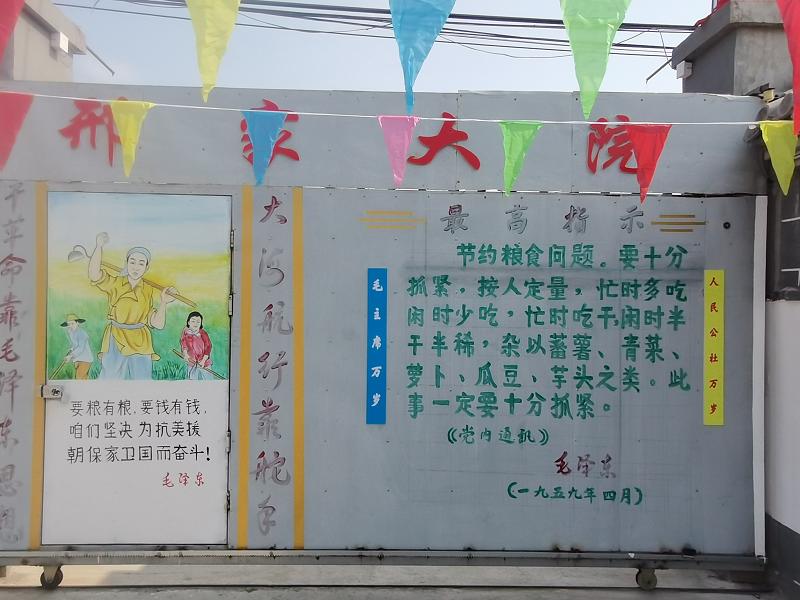 邢家大院
干革命靠毛泽东思想
要粮有粮,要钱有钱,
咱们坚决为抗美援
朝保家卫国而奋斗!
毛泽东
大海航行靠舵手
最高指示
毛主席万岁
节约粮食问题。要十分
抓紧,按人定量,忙时多吃
闲时少吃,忙时吃干,闲时半
干半稀,杂以蕃薯、青菜、
萝卜、瓜豆、芋头之类。此
事一定要十分抓紧。
《党内通讯》
毛泽东
(一九五九年四月)
人民公社万岁